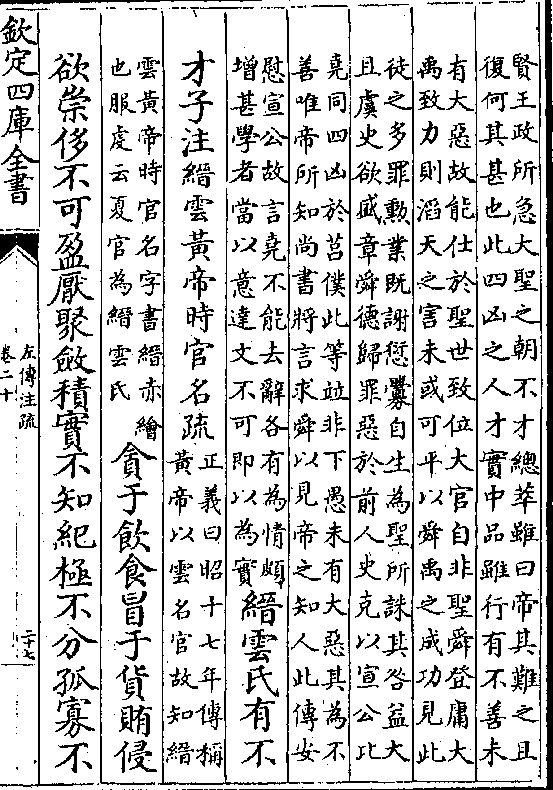 賢王政所急大聖之朝不才總萃雖曰帝其難之且
復何其甚也此四凶之人才實中品雖行有不善未
有大惡故能仕於聖世致位大官自非聖舜登庸大
禹致力則滔天之害未或可平以舜禹之成功見此
徒之多罪勲業既謝愆釁自生為聖所誅其咎益大
且虞史欲盛章舜德歸罪惡於前人史克以宣公比
堯同四凶於莒僕此等竝非下愚未有大惡其為不
善唯帝所知尚書將言求舜以見帝之知人此傳安
慰宣公故言堯不能去辭各有為情頗
增甚學者當以意達文不可即以為實
縉雲氏有不
才子注縉雲黃帝時官名疏
正義曰昭十七年傳稱
黃帝以雲名官故知縉
雲黃帝時官名字書縉赤繒
也服虔云夏官為縉雲氏
貪于飲食冒于貨賄侵
欲崇侈不可盈厭聚斂積實不知紀極不分孤寡不
欽定四庫全書
左傳注疏
卷二十
二十七